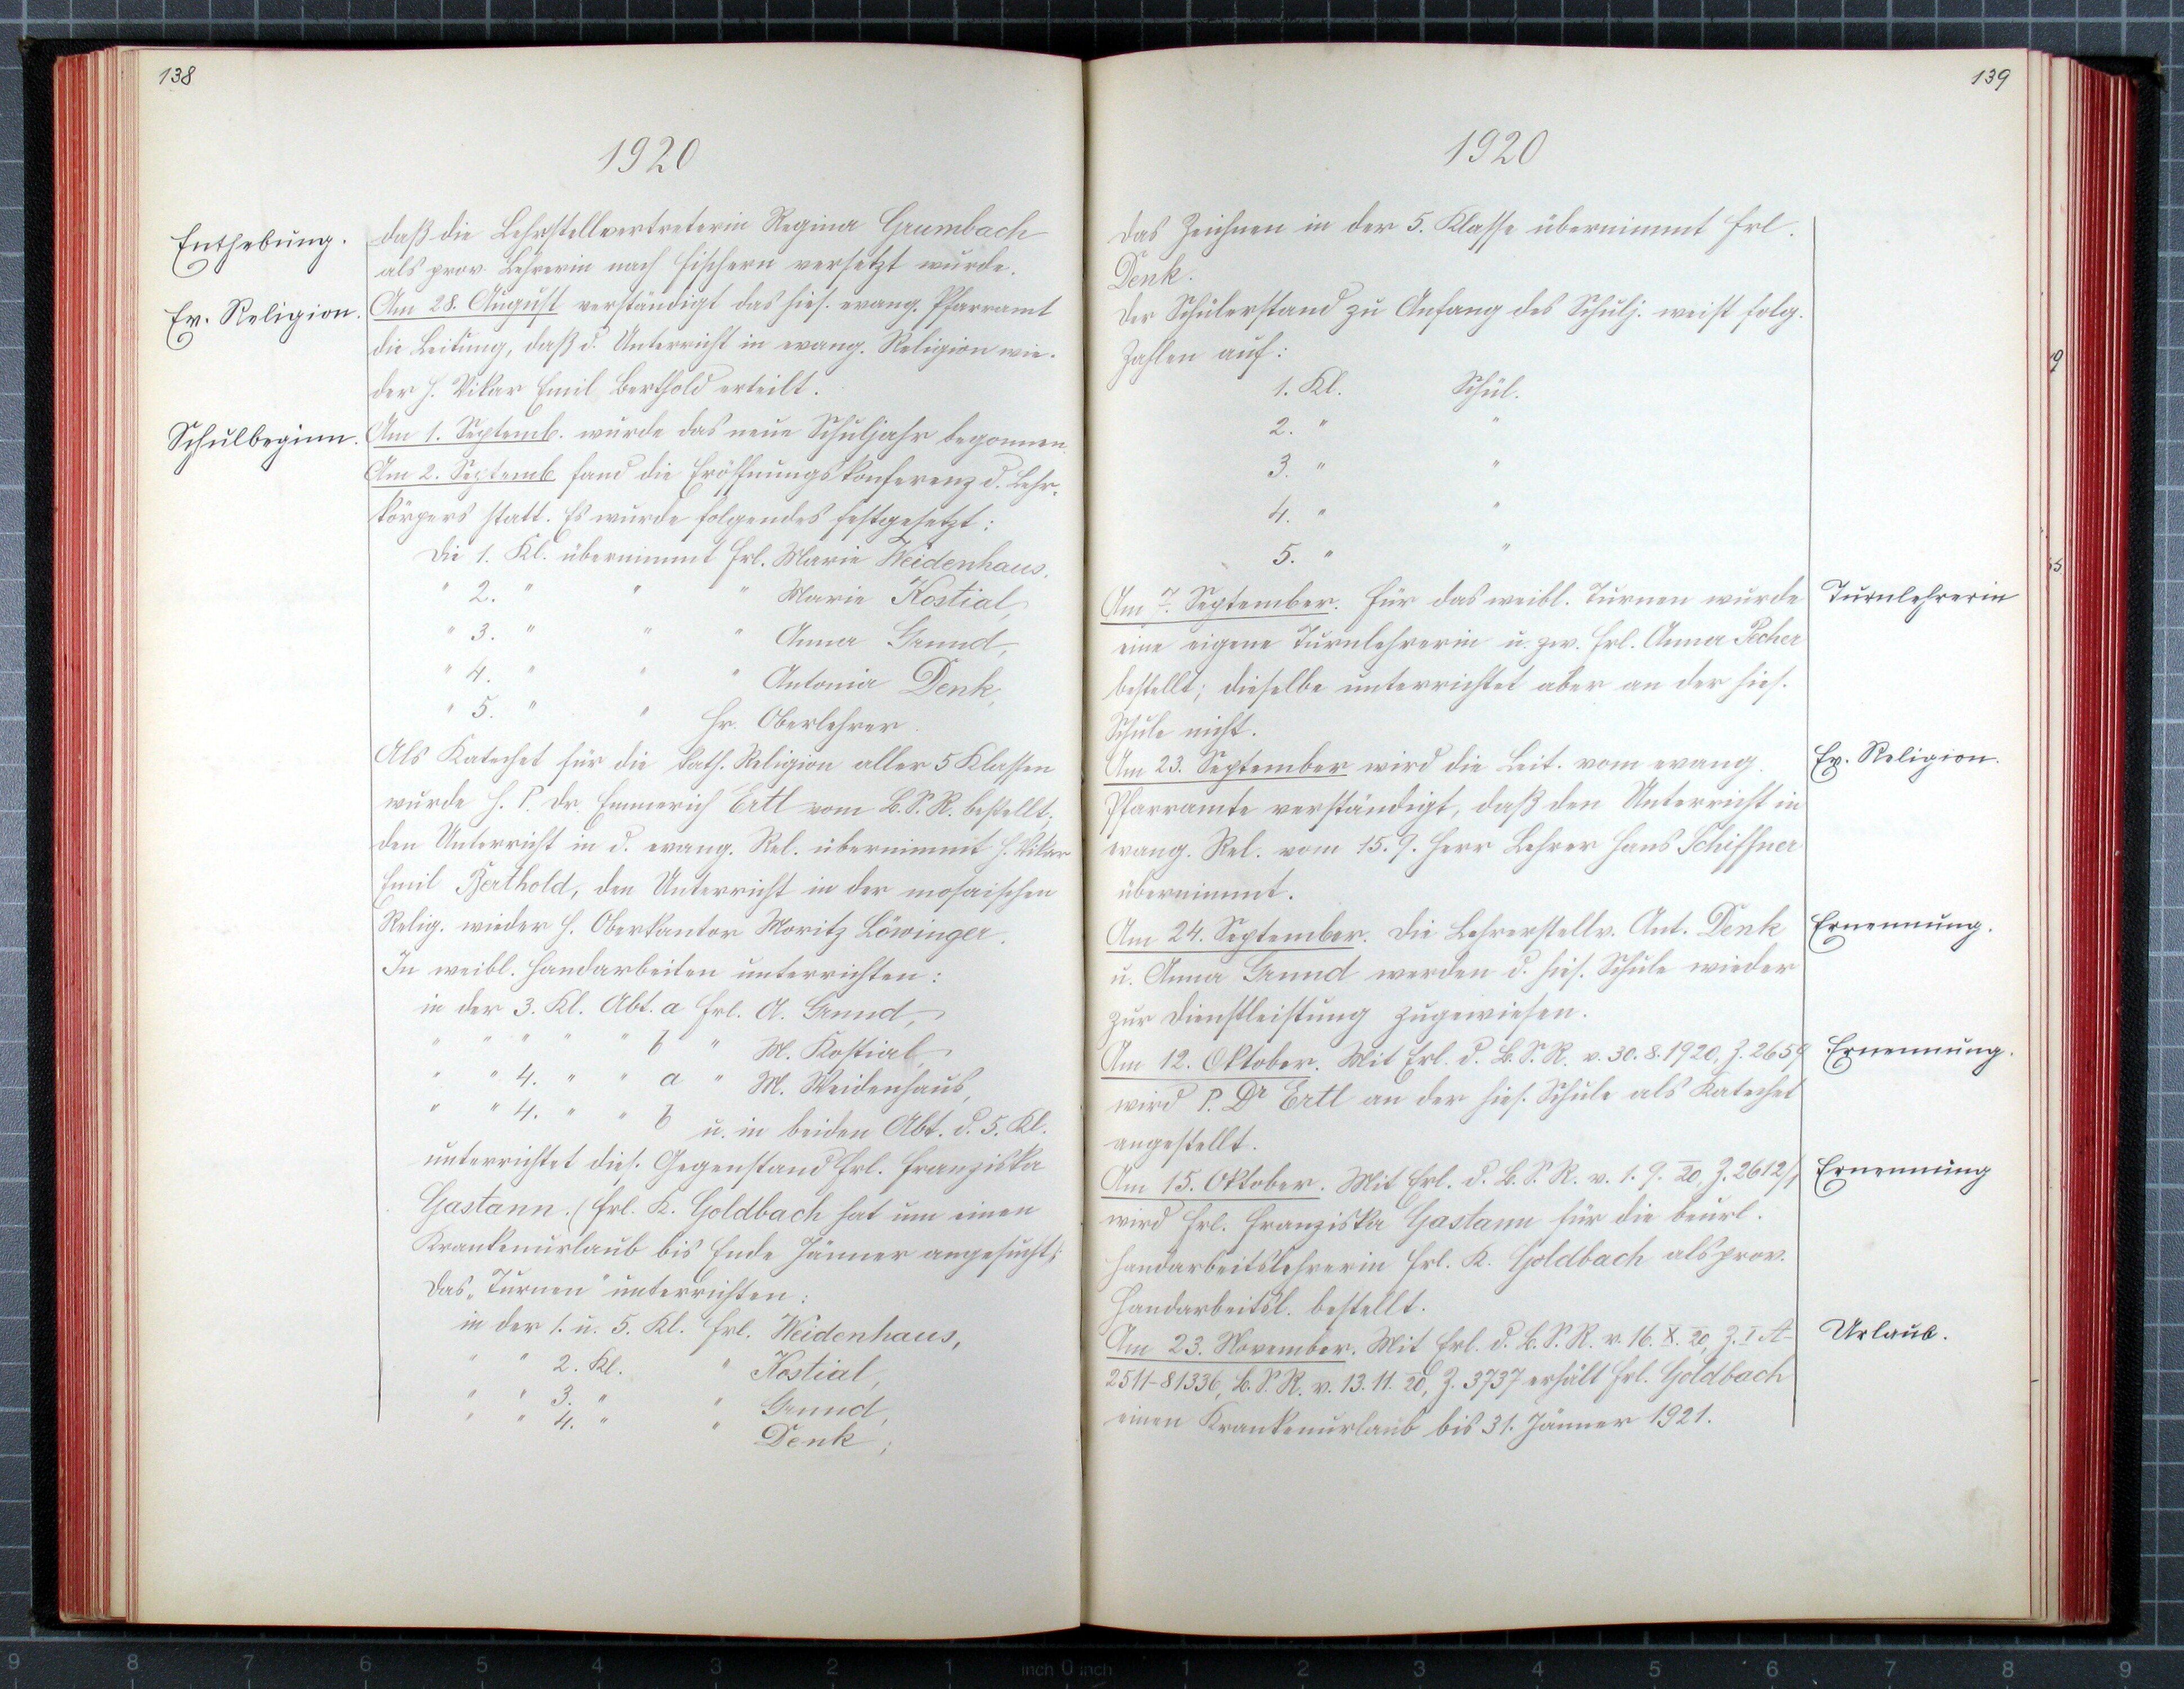 138
1920
Enthebung.
daß die Lehrstellvertreterin Regina Grumbach
als prov. Lehrerin nach Fischern versetzt wurde.
Ev. Religion.
Am 28. August verständigt das hies. evang. Pfarramt
die Leitung, daß d. Unterricht in evang. Religion wie-
der H. Vikar Emil Berthold erteilt.
Schulbeginn.
Am 1. Septemb. wurde das neue Schuljahr begonnen.
Am 2. Septemb. fand die Eröffnungskonferenz d. Lehr-
körpers statt. Es wurde folgendes festgesetzt:
Die 1. Kl. übernimmt Frl. Marie Weidenhaus,
" 2. " " " Marie Kostial,
" 3. " " " Anna Grund,
" 4. " " " Antonia Denk,
" 5. " " Hr. Oberlehrer.
Als Katechet für die kath. Religion aller 5 Klassen
wurde H. P. Dr. Emmerich Ertl vom B.S.R. bestellt;
den Unterricht in d. evang. Rel. übernimmt H. Vikar
Emil Berthold, den Unterricht in der mosaischen
Relig. wieder H. Oberkantor Moritz Löwinger.
In weibl. Handarbeiten unterrichten:
in der 3. Kl. Abt. a Frl. A. Grund,
" " " " " b " M. Kostial,
" " 4. " " a " M. Weidenhaus,
" " 4. " " b u. in beiden Abt. d. 5. Kl.
unterrichtet dies. Gegenstand Frl. Franziska
Gastann. (Frl. K. Goldbach hat um einen
Krankenurlaub bis Ende Jänner angesucht);
Das „Turnen" unterrichten:
in der 1. u. 5. Kl. Frl. Weidenhaus,
" " 2. Kl. " Kostial,
" " 3. " " Grund,
" " 4. " " Denk;
139
1920
das Zeichnen in der 5. Klasse übernimmt Frl.
Denk.
Der Schülerstand zu Anfang des Schulj. weist folg.
Zahlen auf:
1. Kl. Schül.
2. " "
3. " "
4. " "
5. " "
Am 7. September. Für das weibl. Turnen wurde
Turnlehrerin
eine eigene Turnlehrerin u. zw. Frl. Anna Pecher
bestellt; dieselbe unterrichtet aber an der hies.
Schule nicht.
Am 23. September wird die Leit. vom evang.
Ev. Religion.
Pfarramte verständigt, daß den Unterricht in
evang. Rel. vom 15. 9. Herr Lehrer Hans Schiffner
übernimmt.
Am 24. September. Die Lehrerstellv. Ant. Denk
Ernennung.
u. Anna Grund werden d. hies. Schule wieder
zur Dienstleistung zugewiesen.
Am 12. Oktober. Mit Erl. d. B.S.R. v. 30. 8. 1920, Z. 2659
Ernennung.
wird P. Dr Ertl an der hies. Schule als Katechet
angestellt.
Am 15. Oktober. Mit Erl. d. B.S.R. v. 1. 9. 20, Z. 2612/1
Ernennung
wird Frl. Franziska Gastann für die beurl.
Handarbeitslehrerin Frl. K. Goldbach als prov.
Handarbeitsl. bestellt.
Am 23. November. Mit Erl. d. B.S.R. v. 16. X. 20, Z. I A-
Urlaub.
2511-81336, B.S.R. v. 13. 11. 20, Z. 3737 erhält Frl. Goldbach
einen Krankenurlaub bis 31. Jänner 1921.
9 8 7 6 5 4 3 2 1 inch 0 inch 1 2 3 4 5 6 7 8 9